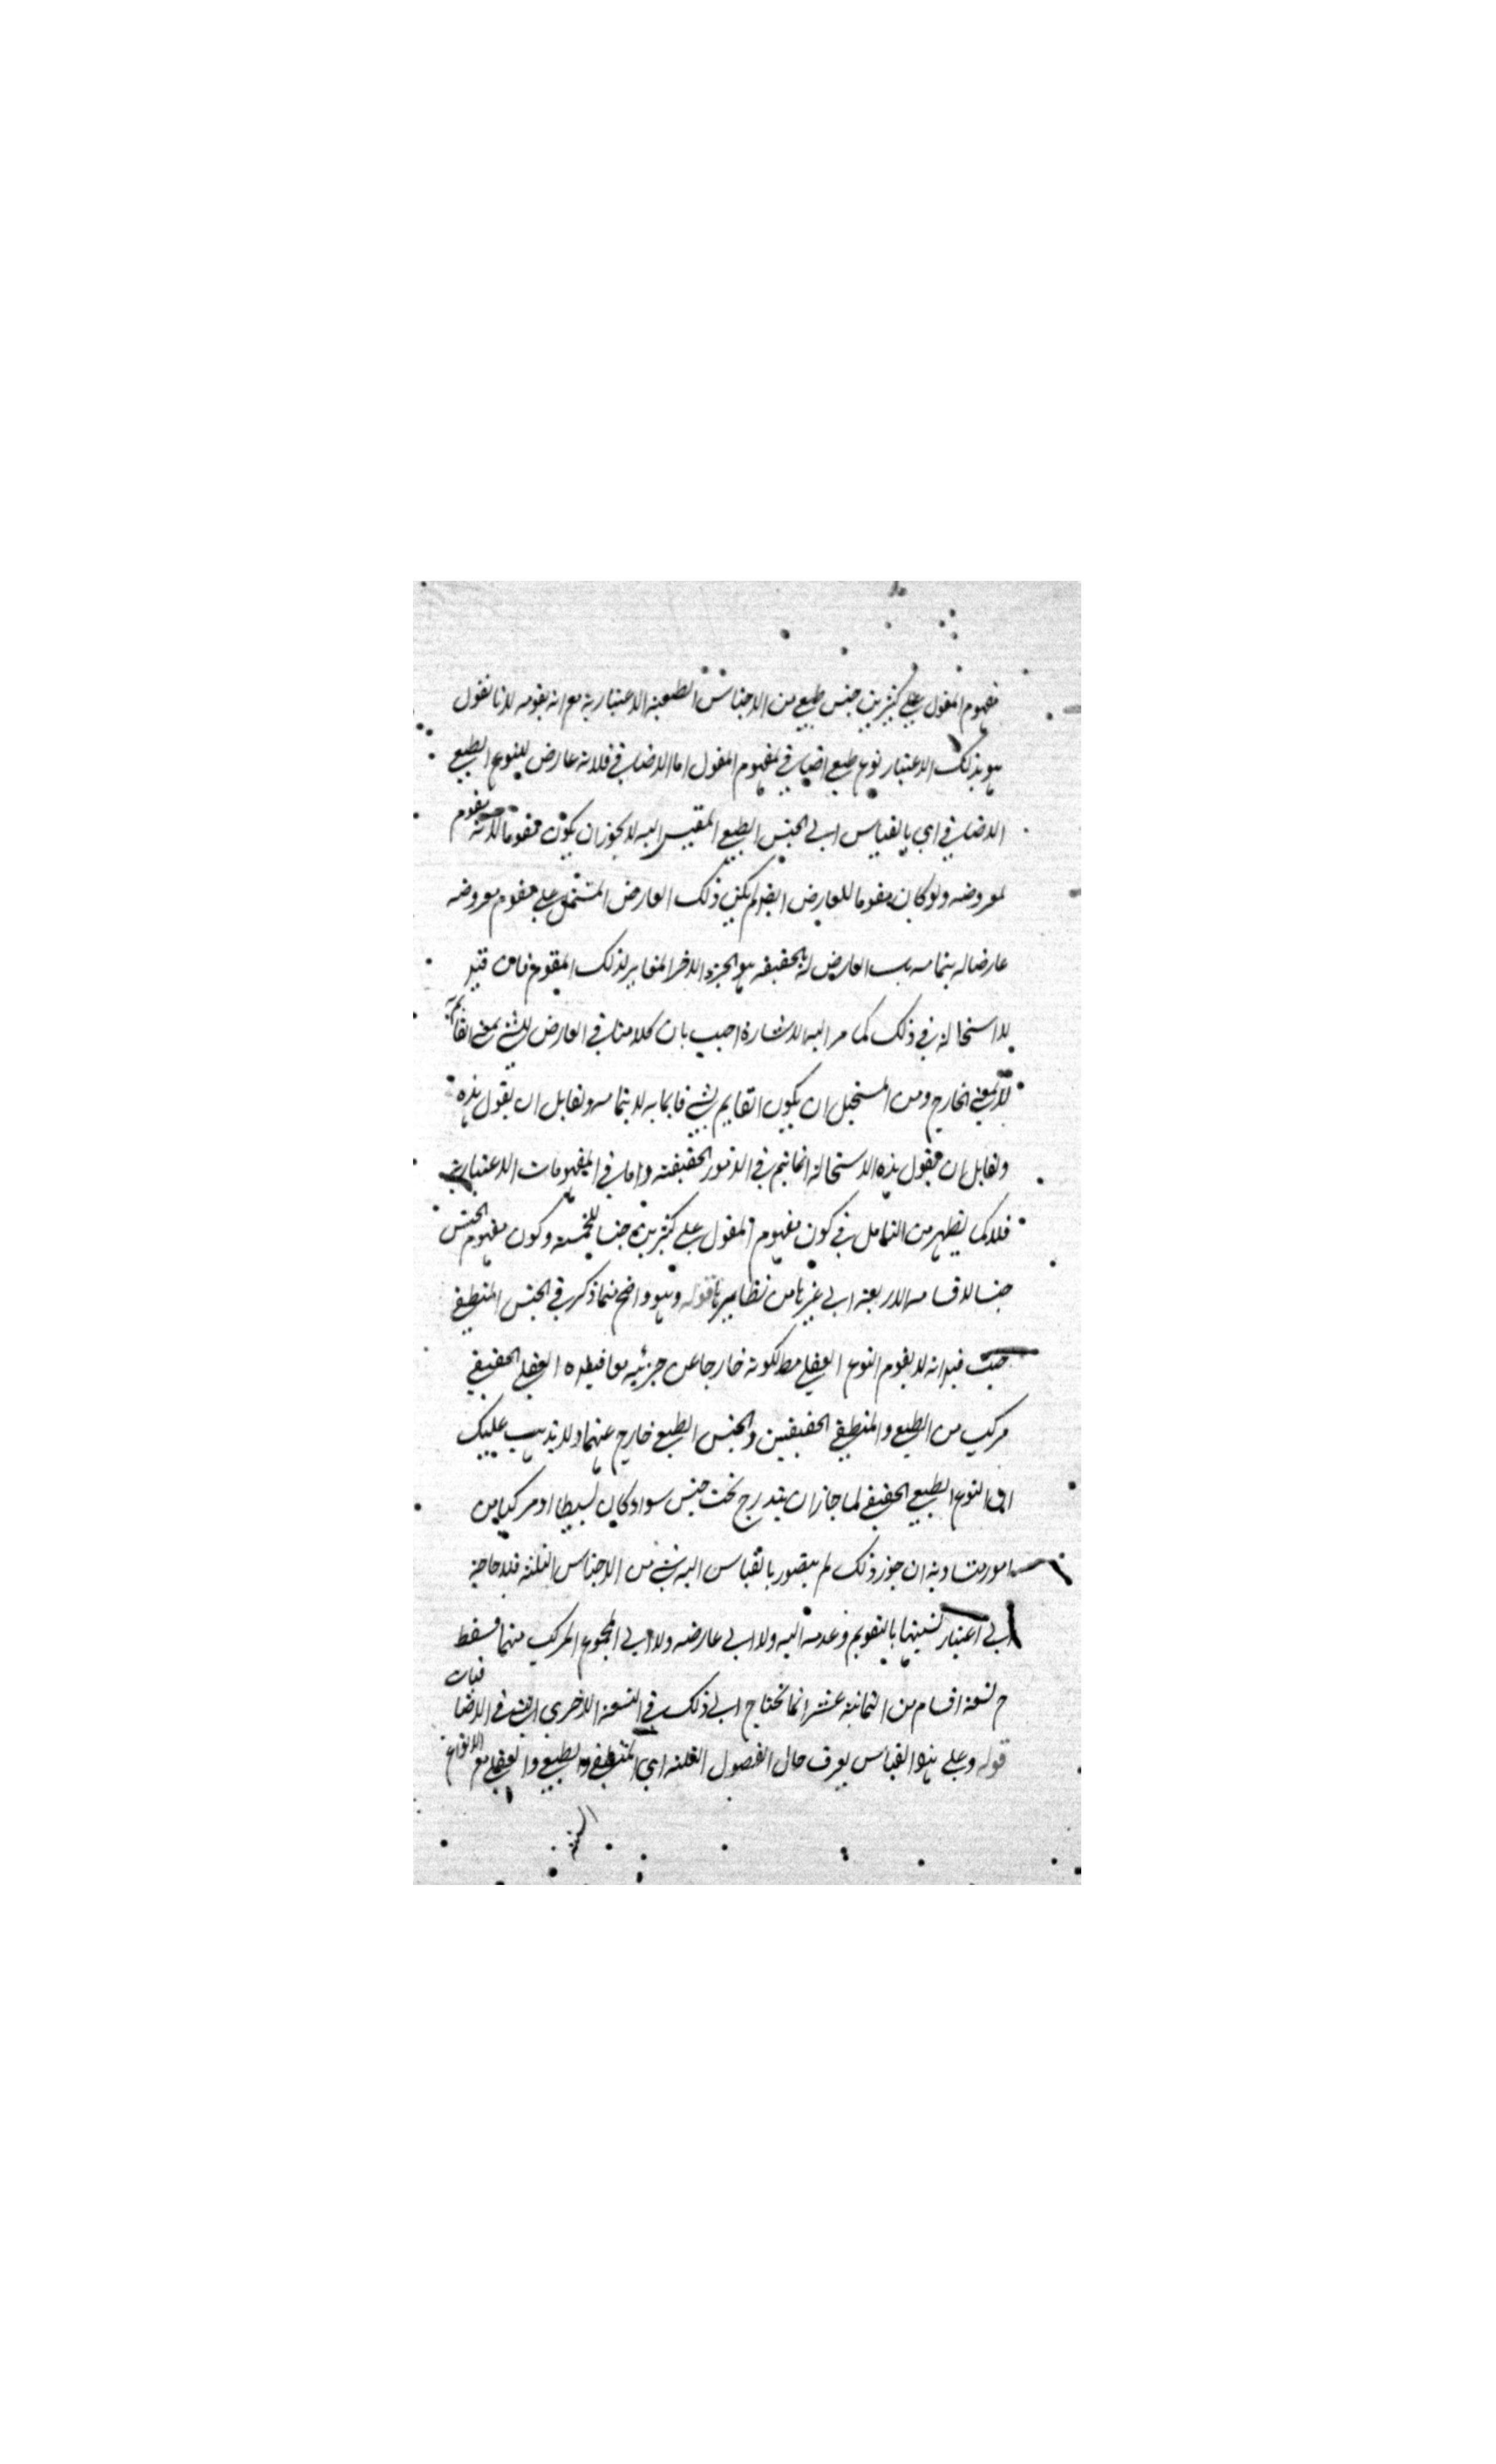 مفهوم المقول على كثيرين جنس طبيعي من الاجناس الطبيعية الاعتبارية مع انه يقومه لانا نقول
هو بذلك الاعتبار نوع طبيعي اضافي لمفهوم المقول اما الاضافي فلانه عارض للنوع الطبيعي
الاضافي اي بالقياس الى الجنس الطبيعي المقيس اليه لا يجوز ان يكون مقوما لانه مقوم
لمعروضه ولو كان مقوما للعارض ايضا لم يكن ذلك العارض المشتمل على مقوم معروضه
عارضا له بتمامه بل العارض له بالحقيقة هو الجزء الاخر المغاير لذلك المقوم فان قيل
لا استحالة في ذلك كما مر اليه الاشارة اجيب بان كلامنا في العارض للشيء بمعنى القائم به
لا بمعنى الخارج ومن المستحيل ان يكون القايم بشيء قايما به لا بتمامه ولقايل ان يقول هذه
ولقايل ان يقول هذه الاستحالة انما تتم في الامور الحقيقية واما في المفهومات الاعتبارية
فلا كما يظهر من التامل في كون مفهوم المقول على كثيرين جنسا للخمسة وكون مفهوم الجنس
جنسا لاقسامه الاربعة الى غيرها من نظايرها قوله وهو واضح مما ذكر في الجنس المنطقي
حيث قيل انه لا يقوم النوع العقلي لكونه خارجا عن جزئيه العقلي الحقيقي
مركب من الطبيعي والمنطقي الحقيقيين والجنس الطبيعي خارج عنهما ولا يذهب عليك
ان النوع الطبيعي الحقيقي لما جاز ان لا يندرج تحت جنس سواء كان بسيطا او مركبا من
امور متساوية ان جوز ذلك لم يتصور بالقياس اليه شيء من الاجناس الثلثة فلا حاجة
الى اعتبار نسبتها بالتقويم وعدمه اليه ولا الى عارضه ولا الى المجموع المركب منهما فسقط
ح تسعة اقسام من الثمانية عشر انما نحتاج الى ذلك في التسعة الاخرى اعني في الاضافيات
قوله وعلى هذا القياس يعرف حال الفصول الثلثة اي المنطقي والطبيعي والعقلي مع الانواع